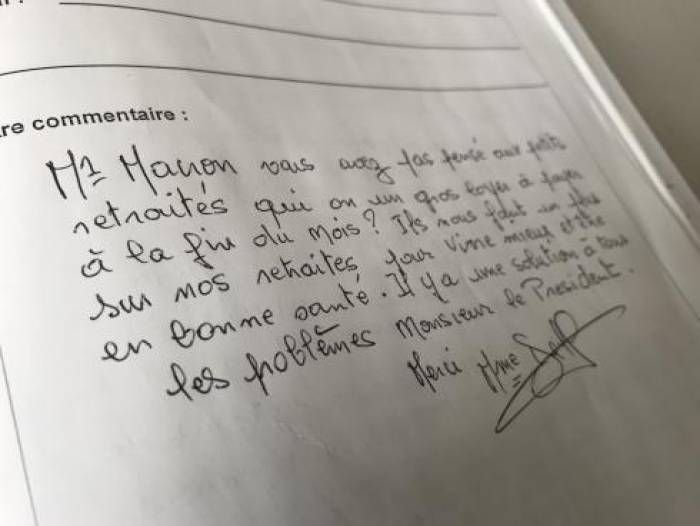 re commentaire :
Mr Macron vous avez pas pensé aux petits
retraités qui on un gros loyer à payer
à la fin du mois ? Ils nous faut un plus
sur nos retraites pour vivre mieux et être
en bonne santé. Il y a une solution à tous
les poblèmes Monsieur le President.
Merci Mme